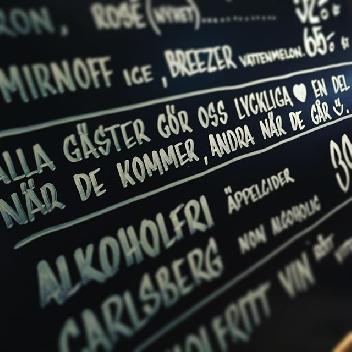 RON, ROSÉ (NYHET)............
SMIRNOFF ICE, BREEZER VATTENMELON. 65:-
ALLA GÄSTER GÖR OSS LYCKLIGA ♥ EN DEL
NÄR DE KOMMER, ANDRA NÄR DE GÅR ☺.
ALKOHOLFRI ÄPPELCIDER
CARLSBERG NON ALCOHOLIC
VIN